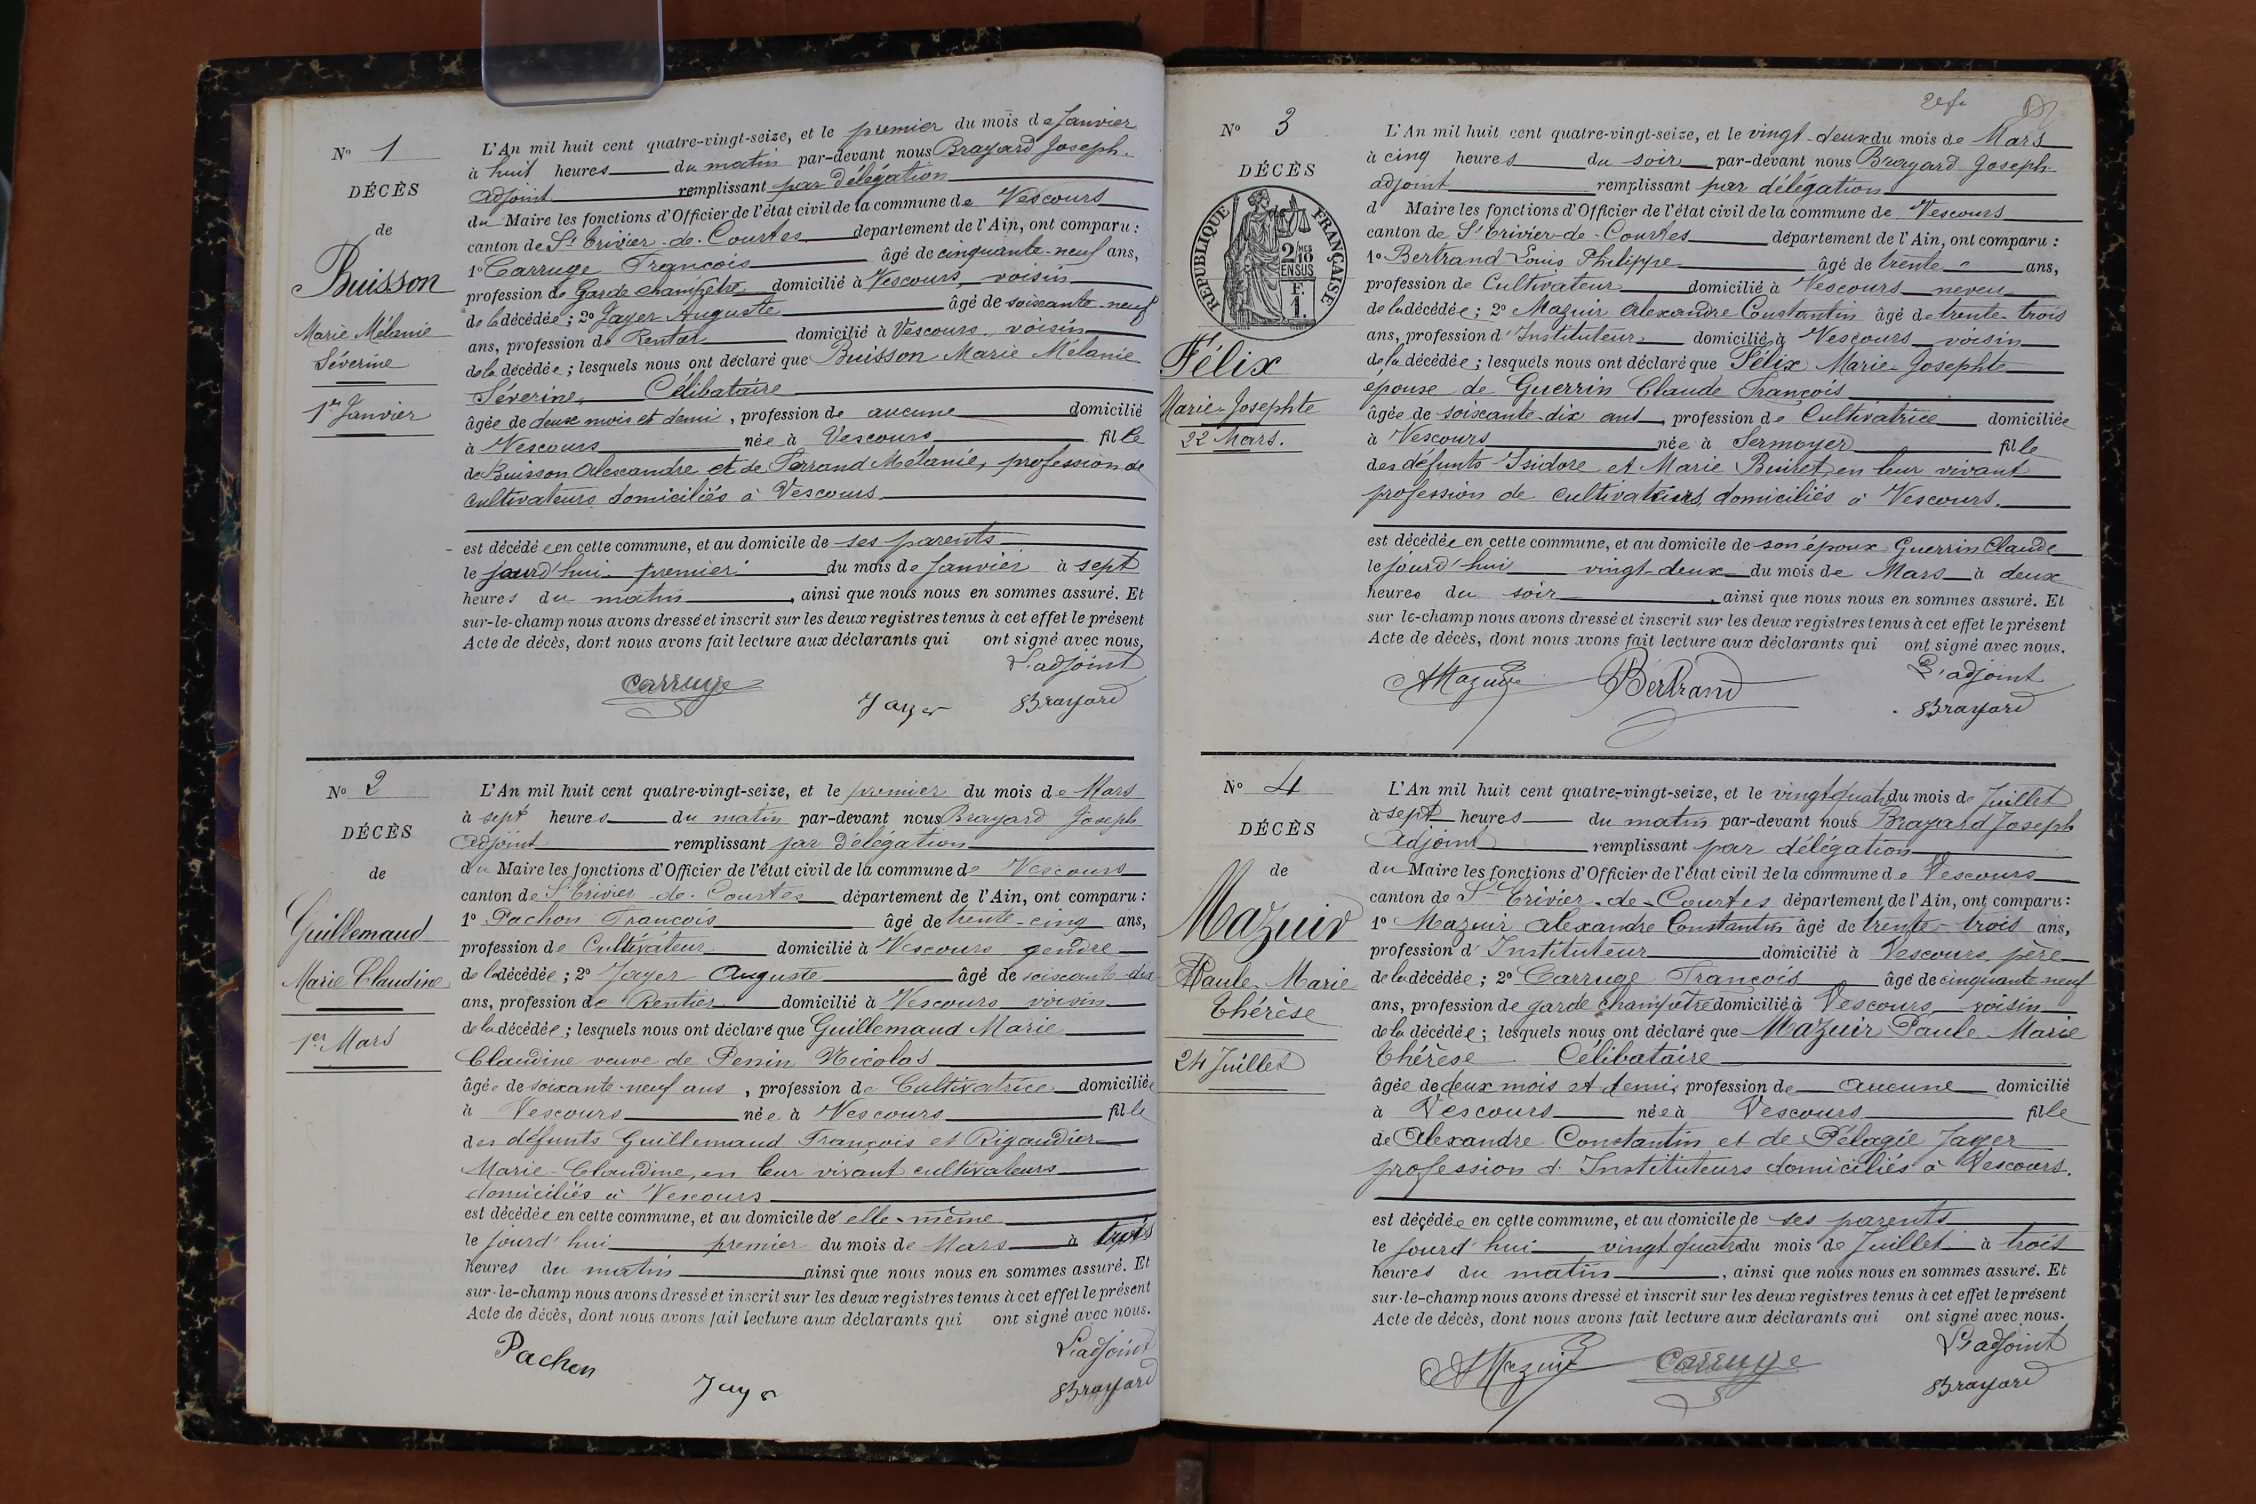 N° 1
DÉCÈS
de
Buisson
Marie Mélanie
Séverine
1er Janvier
L'An mil huit cent quatre-vingt-seize, et le premier du mois de Janvier
à huit heures du matin par-devant nous Brayard Joseph
adjoint remplissant par délégation
du Maire les fonctions d'Officier de l'état civil de la commune de Vescours
canton de St Trivier-de-Courtes département de l'Ain, ont comparu :
1° Carruge François âgé de cinquante-neuf ans,
profession de Garde champêtre domicilié à Vescours, voisin
de la décédée ; 2° Jayer Auguste âgé de soixante-neuf
ans, profession de Rentier domicilié à Vescours voisin
de la décédée ; lesquels nous ont déclaré que Buisson Marie Mélanie
Séverine, Célibataire
âgée de deux mois et demi, profession de aucune domicilié
à Vescours née à Vescours fille
de Buisson Alexandre et de Ferrand Mélanie, profession de
cultivateurs domiciliés à Vescours
est décédée en cette commune, et au domicile de ses parents
le jourd'hui premier du mois de Janvier à sept
heures du matin, ainsi que nous nous en sommes assuré. Et
sur-le-champ nous avons dressé et inscrit sur les deux registres tenus à cet effet le présent
Acte de décès, dont nous avons fait lecture aux déclarants qui ont signé avec nous.
L'adjoint
Carruge Jayer Brayard
N° 2
DÉCÈS
de
Guillemaud
Marie Claudine
1er Mars
L'An mil huit cent quatre-vingt-seize, et le premier du mois de Mars
à sept heures du matin par-devant nous Brayard Joseph
adjoint remplissant par délégation
du Maire les fonctions d'Officier de l'état civil de la commune de Vescours
canton de St Trivier-de-Courtes département de l'Ain, ont comparu :
1° Pachon François âgé de trente-cinq ans,
profession de Cultivateur domicilié à Vescours gendre
de la décédée ; 2° Jayer Auguste âgé de soixante-dix
ans, profession de Rentier domicilié à Vescours voisin
de la décédée ; lesquels nous ont déclaré que Guillemaud Marie
Claudine veuve de Penin Nicolas
âgée de soixante-neuf ans, profession de Cultivatrice domiciliée
à Vescours née à Vescours fille
des défunts Guillemaud François et Rigaudier
Marie-Claudine, en leur vivant cultivateurs
domiciliés à Vescours
est décédée en cette commune, et au domicile de elle-même
le jourd'hui premier du mois de Mars à trois
heures du matin ainsi que nous nous en sommes assuré. Et
sur-le-champ nous avons dressé et inscrit sur les deux registres tenus à cet effet le présent
Acte de décès, dont nous avons fait lecture aux déclarants qui ont signé avec nous.
L'adjoint
Pachon Jayer Brayard
N° 3
DÉCÈS
RÉPUBLIQUE FRANÇAISE
2/10 MES
EN SUS
F.
1.
Félix
Marie-Josephte
22 Mars.
L'An mil huit cent quatre-vingt-seize, et le vingt-deux du mois de Mars
à cinq heures du soir par-devant nous Brayard Joseph
adjoint remplissant par délégation
d Maire les fonctions d'Officier de l'état civil de la commune de Vescours
canton de St Trivier-de-Courtes département de l'Ain, ont comparu :
1° Bertrand Louis Philippe âgé de trente " ans,
profession de Cultivateur domicilié à Vescours neveu
de la décédée ; 2° Mazuir Alexandre Constantin âgé de trente-trois
ans, profession d'Instituteur domicilié à Vescours voisin
de la décédée ; lesquels nous ont déclaré que Félix Marie-Josephte
épouse de Guerrin Claude François
âgée de soixante-dix ans, profession de Cultivatrice domiciliée
à Vescours née à Sermoyer fille
des défunts Isidore et Marie Buiret en leur vivant
profession de cultivateurs domiciliés à Vescours.
est décédée en cette commune, et au domicile de son époux Guerrin Claude
le jourd'hui vingt-deux du mois de Mars à deux
heures du soir, ainsi que nous nous en sommes assuré. Et
sur le-champ nous avons dressé et inscrit sur les deux registres tenus à cet effet le présent
Acte de décès, dont nous avons fait lecture aux déclarants qui ont signé avec nous.
L'adjoint
AMazuir Bertrand Brayard
N° 4
DÉCÈS
de
Mazuir
Paule Marie
Thérèse
24 Juillet
L'An mil huit cent quatre-vingt-seize, et le vingt quatre du mois de Juillet
à sept heures du matin par-devant nous Brayard Joseph
Adjoint remplissant par délégation
du Maire les fonctions d'Officier de l'état civil de la commune de Vescours
canton de St Trivier-de-Courtes département de l'Ain, ont comparu :
1° Mazuir Alexandre Constantin âgé de trente-trois ans,
profession d'Instituteur domicilié à Vescours père
de la décédée ; 2° Carruge François âgé de cinquante neuf
ans, profession de garde champêtre domicilié à Vescours voisin
de la décédée ; lesquels nous ont déclaré que Mazuir Paule Marie
Thérèse Célibataire
âgée de deux mois et demi, profession de aucune domicilié
à Vescours née à Vescours fille
de Alexandre Constantin et de Pélagie Jayer
profession d'Instituteurs domiciliés à Vescours.
est décédée en cette commune, et au domicile de ses parents
le jourd'hui vingt quatre du mois de Juillet à trois
heures du matin, ainsi que nous nous en sommes assuré. Et
sur-le-champ nous avons dressé et inscrit sur les deux registres tenus à cet effet le présent
Acte de décès, dont nous avons fait lecture aux déclarants qui ont signé avec nous.
L'adjoint
AMazuir Carruge Brayard